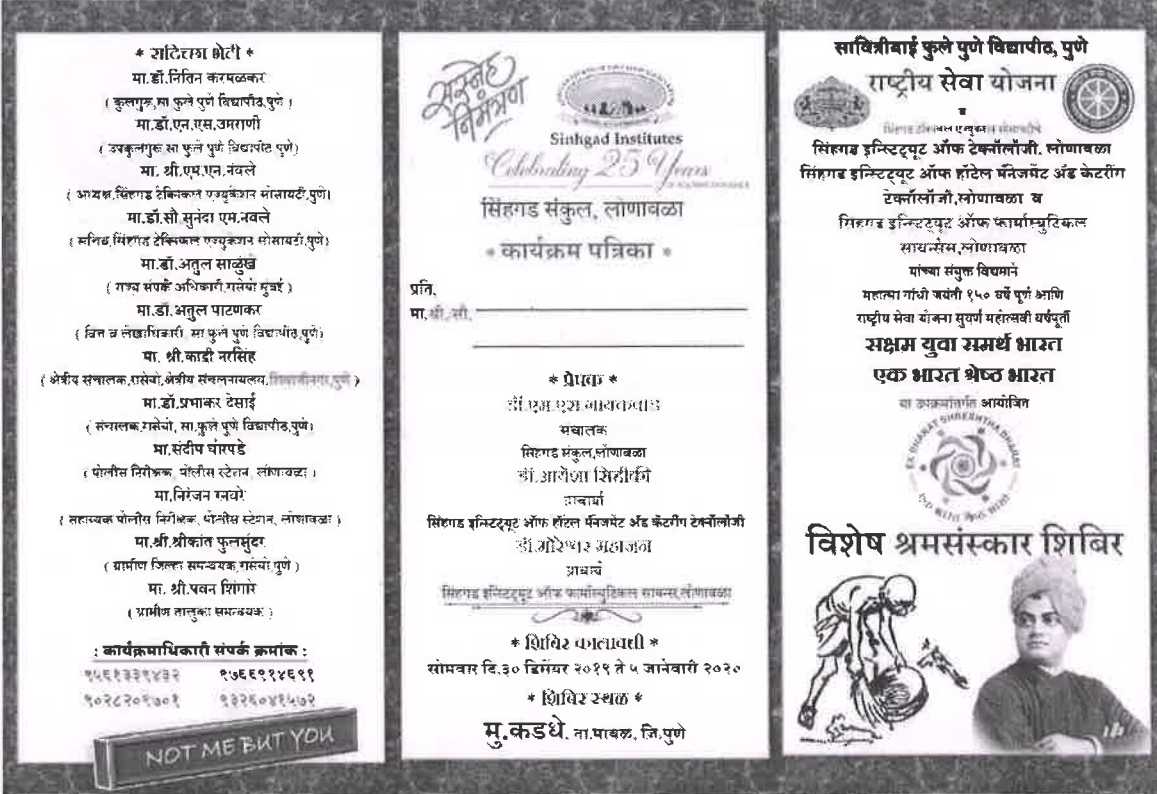 * सदिच्छा भेटी *
मा.डॉ.नितिन करमळकर
( कुलगुरू,सा फुले पुणे विद्यापीठ,पुणे )
मा.डॉ.एन.एस.उमराणी
( उपकुलगुरू सा फुले पुणे विद्यापीठ पुणे)
मा. श्री.एम.एन.नवले
( अध्यक्ष,सिंहगड टेक्निकल एज्युकेशन सोसायटी,पुणे)
मा.डॉ.सौ.सुनंदा एम.नवले
( सचिव,सिंहगड टेक्निकल एज्युकेशन सोसायटी,पुणे)
मा.डॉ.अतुल साळुंखे
( राज्य संपर्क अधिकारी,रासेयो मुंबई )
मा.डॉ.अतुल पाटणकर
( वित्त व लेखाधिकारी, सा फुले पुणे विद्यापीठ,पुणे)
मा. श्री.काद्री नरसिंह
( क्षेत्रीय संचालक,रासेयो,क्षेत्रीय संचलनायलय,शिवाजीनगर,पुणे )
मा.डॉ.प्रभाकर देसाई
( संचालक,रासेयो, सा.फुले पुणे विद्यापीठ,पुणे)
मा.संदीप घोरपडे
( पोलीस निरीक्षक, पोलीस स्टेशन, लोणावळा )
मा.निरंजन रनवरे
( सहाय्यक पोलीस निरीक्षक, पोलीस स्टेशन, लोणावळा )
मा.श्री.श्रीकांत फुलसुंदर
( ग्रामीण जिल्हा समन्वयक,रासेयो पुणे )
मा. श्री.पवन शिंगारे
( ग्रामीण तालुका समन्वयक )
: कार्यक्रमाधिकारी संपर्क क्रमांक :
९५६१३३९४३२ ९७६६९१४६९१
९०२८२०९७०१ ९३२६०४१५७२
NOT ME BUT YOU
सस्नेह
निमंत्रण
Sinhgad Institutes
Celebrating 25 Years
सिंहगड संकुल, लोणावळा
* कार्यक्रम पत्रिका *
प्रति,
मा.श्री./सौ.
* प्रेषक *
डॉ.एम.एस.गायकवाड
संचालक
सिंहगड संकुल,लोणावळा
डॉ.आयेशा सिद्दीकी
प्राचार्या
सिंहगड इन्स्टिट्यूट ऑफ हॉटेल मॅनेजमेंट अँड केटरींग टेक्नॉलॉजी
डॉ.मोरेश्वर महाजन
प्राचार्य
सिंहगड इन्स्टिट्यूट ऑफ फार्मास्युटिकल सायन्स,लोणावळा
* शिबिर कालावधी *
सोमवार दि.३० डिसेंबर २०१९ ते ५ जानेवारी २०२०
* शिबिर स्थळ *
मु.कडधे. ता.मावळ, जि.पुणे
सावित्रीबाई फुले पुणे विद्यापीठ, पुणे
राष्ट्रीय सेवा योजना
व
सिंहगड टेक्निकल एज्युकेशन सोसायटीचे
सिंहगड इन्स्टिट्यूट ऑफ टेक्नॉलॉजी. लोणावळा
सिंहगड इन्स्टिट्यूट ऑफ हॉटेल मॅनेजमेंट अँड केटरींग
टेक्नॉलॉजी,लोणावळा व
सिंहगड इन्स्टिट्यूट ऑफ फार्मास्युटिकल
सायन्सेस,लोणावळा
यांच्या संयुक्त विद्यमाने
महात्मा गांधी जयंती १५० वर्षे पुर्ण आणि
राष्ट्रीय सेवा योजना सुवर्ण महोत्सवी वर्षपूर्ती
सक्षम युवा समर्थ भारत
एक भारत श्रेष्ठ भारत
या उपक्रमांतर्गत आयोजित
EK BHARAT SHRESHTHA BHARAT
एक भारत श्रेष्ठ भारत
विशेष श्रमसंस्कार शिबिर